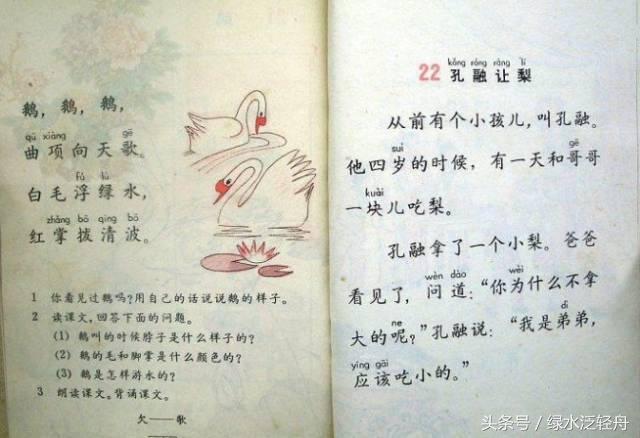 鹅，鹅，鹅，
qū xiàng gē
曲项向天歌。
fú lǜ
白毛浮绿水，
zhǎng bō qīng bō
红掌拨清波。
1 你看见过鹅吗？用自己的话说说鹅的样子。
2 读课文，回答下面的问题。
(1) 鹅叫的时候脖子是什么样子的？
(2) 鹅的毛和脚掌是什么颜色的？
(3) 鹅是怎样游水的？
3 朗读课文。背诵课文。
欠——歌
kǒng róng ràng lí
22 孔融让梨
从前有个小孩儿，叫孔融。
suì gē
他四岁的时候，有一天和哥哥
kuài
一块儿吃梨。
孔融拿了一个小梨。爸爸
wèn dào wèi
看见了，问道：“你为什么不拿
ne dì
大的呢？”孔融说：“我是弟弟，
yīng gāi
应该吃小的。”
头条号/绿水泛轻舟